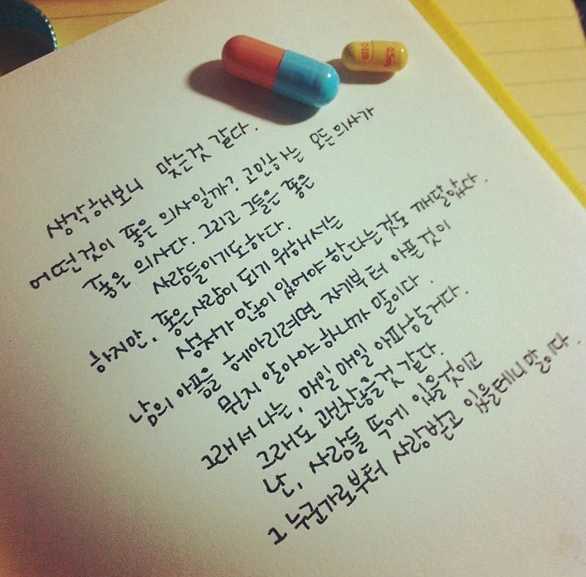 0.5mg
생각해보니 맞는것 같다.
어떤것이 좋은 의사일까? 고민하는 모든의사가
좋은 의사다. 그리고 그들은 좋은
사람들이기도하다.
하지만, 좋은사람이 되기 위해서는
상처가 많이 있어야 한다는것도 깨달았다.
남의 아픔을 헤아리려면 자기부터 아픈 것이
뭔지 알아야하니까 말이다.
그래서 나는, 매일 매일 아파하는거다.
그래도 괜찮을것 같다.
난, 사람들 뜻에 있을것이고
그 누군가로부터 사랑받고 있을테니 말이다.